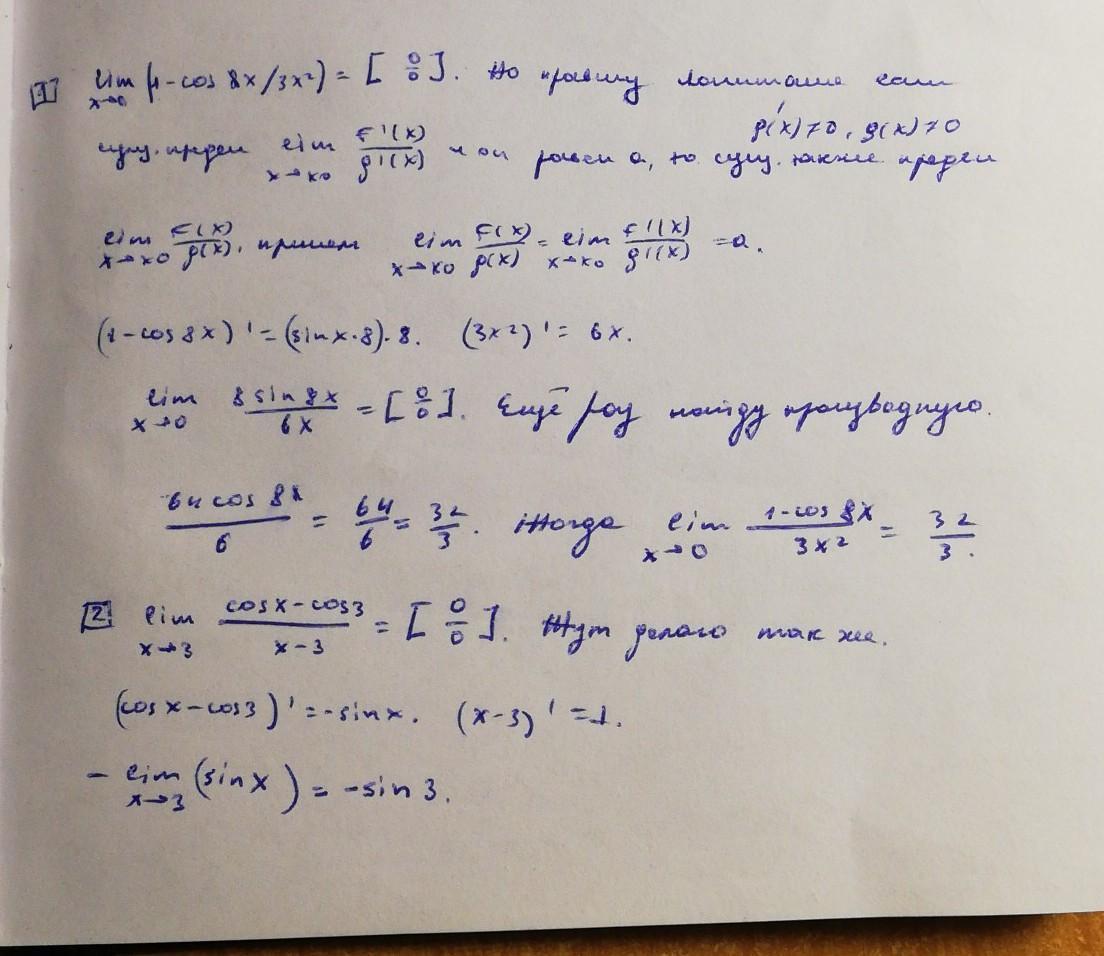 1 lim x→0 (1-cos 8x/3x²) = [0/0]. По правилу Лопиталя если
g'(x)≠0, g(x)≠0
сущ. предел lim x→x0 F'(x)/g'(x) и он равен a, то сущ. также предел
lim x→x0 F(x)/g(x), причем lim x→x0 F(x)/g(x) = lim x→x0 F'(x)/g'(x) = a.
(1-cos 8x)' = (sin x·8)·8. (3x²)' = 6x.
lim x→0 8 sin 8x/6x = [0/0]. Ещё раз найду производную.
64 cos 8x/6 = 64/6 = 32/3. Тогда lim x→0 1-cos 8x/3x² = 32/3.
2 lim x→3 cosx-cos3/x-3 = [0/0]. Тут делаю так же.
(cos x-cos3)' = -sin x. (x-3)' = 1.
- lim x→3 (sin x) = -sin 3.